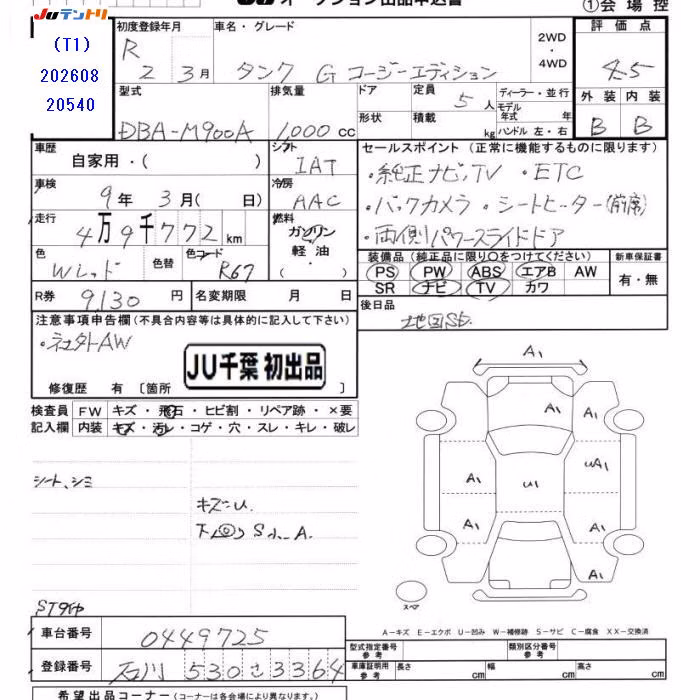 JUテントリ
オークション出品申込書
①会場控
(T1)
202608
20540
初度登録年月
R 2 3月
車名・グレード
タンク G コージーエディション
2WD
・
4WD
評価点
4.5
型式
DBA-M900A
排気量
1,000 cc
ドア
形状
定員 5 人
積載 kg
ディーラー・並行
モデル年式 年
ハンドル 左・右
外装 内装
B B
車歴
自家用・( )
シフト
IAT
セールスポイント (正常に機能するものに限ります)
・純正ナビ、TV ・ETC
・バックカメラ ・シートヒーター(前席)
・両側パワースライドドア
車検
9年 3月( 日)
冷房
AAC
走行
4万9千772km
燃料
ガソリン
軽油
・( )
色
Wレッド
色替
色コード
R67
装備品 (純正品に限り○をつけてください)
PS PW ABS エアB AW
SR ナビ TV カワ
新車保証書
有・無
R券 9,130 円
名変期限 月 日
後日品
地図SD
注意事項申告欄(不具合内容等は具体的に記入して下さい)
・社外AW
JU千葉 初出品
修復歴 有 [箇所 ]
検査員 FW キズ・飛石・ヒビ割・リペア跡・×要
記入欄 内装 キズ・汚レ・コゲ・穴・スレ・キレ・破レ
シート、シミ
キズ=U.
STタイヤ
A1
A1
A1
A1
uA1
u1
A1
A1
A1
スペア
A1
A-キズ E-エクボ U-凹み W-補修跡 S-サビ C-腐食 XX-交換済
車台番号 0449725
登録番号 石川 530 さ 3364
型式指定番号
参考
類別区分番号
参考
車庫証明用
参考
長さ cm
幅 cm
高さ cm
希望出品コーナー(コーナーは各会場により異なります。)